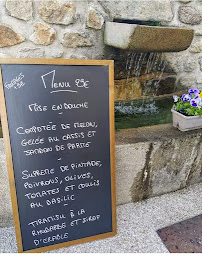 MENU 29€
MISE EN BOUCHE
-
COMPOTÉE DE MELON,
GELÉE AU CASSIS ET
JAMBON DE PARME
-
SUPRÊME DE PINTADE,
POIVRONS, OLIVES,
TOMATES ET COULIS
AU BASILIC
-
TIRAMISU À LA
RHUBARBE ET SIROP
D'ÉRABLE